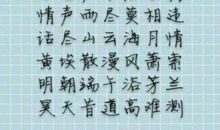 情声两尽莫相违
话尽山云海月情
黄埃散漫风萧索
明朝端午浴芳兰
昊天昔道高难测